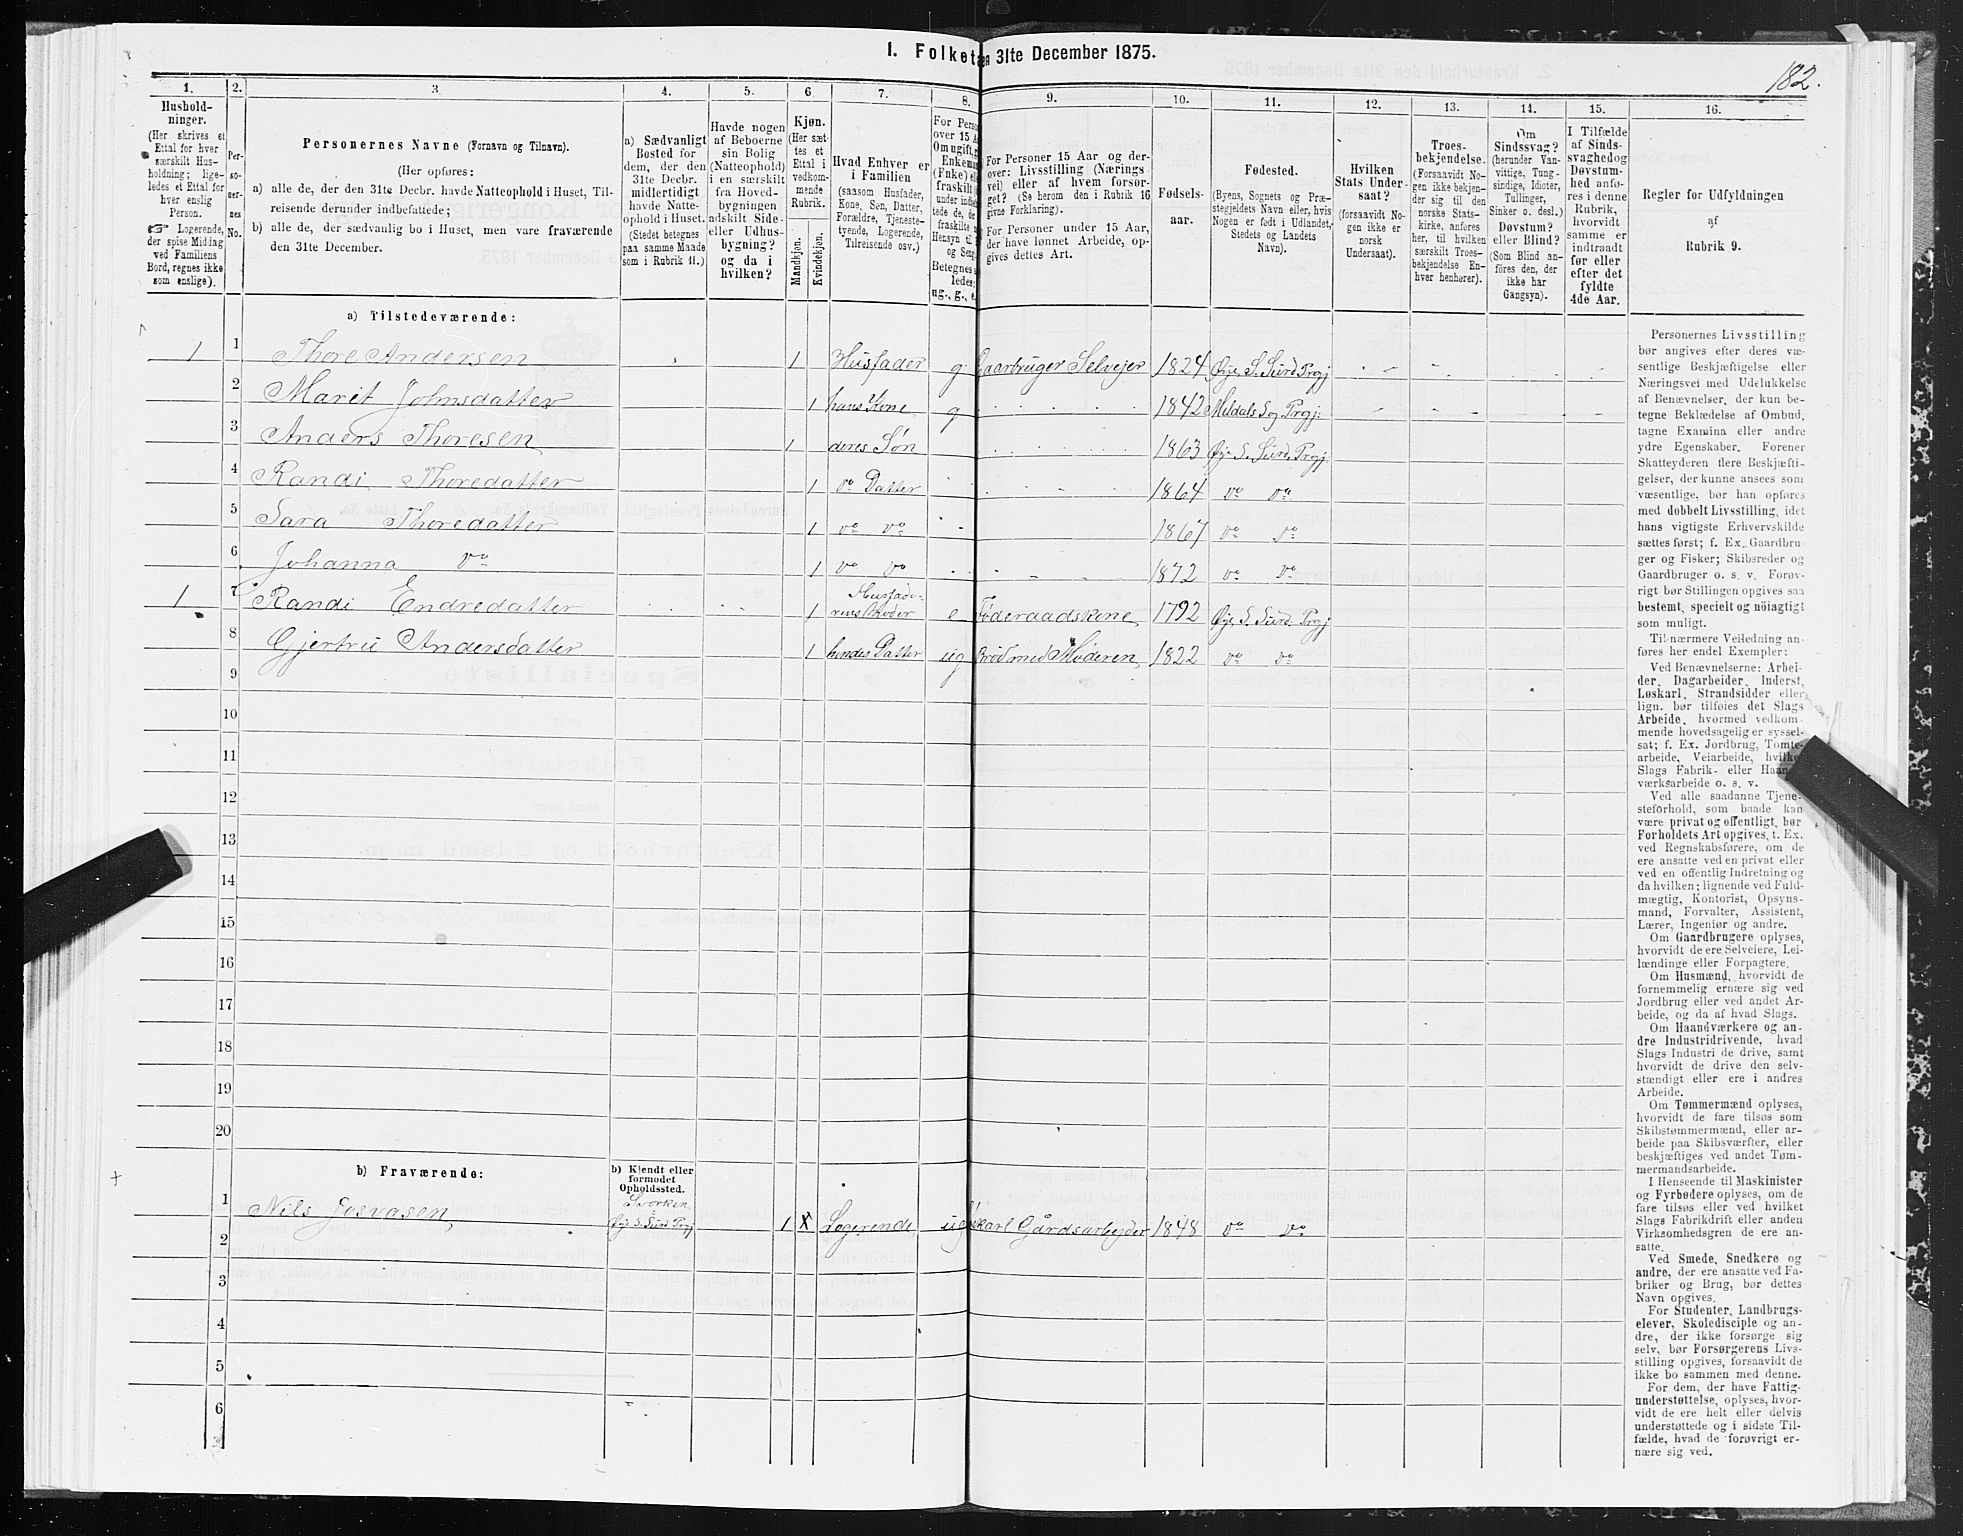 I. Folketa en 31te December 1875.
182.
1.
Hushold-
ninger.
(Her skrives et
Ettal for hver
særskilt Hus-
holdning; lige-
ledes et Ettal for
hver enslig
Person.
☞ Logerende,
der spise Middag
ved Familiens
Bord, regnes ikke
som enslige).
2.
Per-
so-
ner-
nes
No.
3.
Personernes Navne (Fornavn og Tilnavn).
(Her opføres:
a) alle de, der den 31te Decbr. havde Natteophold i Huset, Til-
reisende derunder indbefattede;
b) alle de, der sædvanlig bo i Huset, men vare fraværende
den 31te December.
4.
a) Sædvanligt
Bosted for
dem, der den
31te Decbr.
midlertidigt
havde Natte-
ophold i Huset.
(Stedet betegnes
paa samme Maade
som i Rubrik 11.)
5.
Havde nogen
af Beboerne
sin Bolig
(Natteophold)
i en særskilt
fra Hoved-
bygningen
adskilt Side-
eller Udhus-
bygning?
og da i
hvilken?
6
Kjøn.
(Her sæt-
tes et
Ettal i
vedkom-
mende
Rubrik.
Mandkjøn.
Kvindekjøn.
7.
Hvad Enhver er
i Familien
(saasom Husfader,
Kone, Søn, Datter,
Forældre, Tjeneste-
tyende, Logerende,
Tilreisende osv.)
8.
For Perso
over 15 A
Om ugift,
Enkema
(Fnke) e
fraskilt
under ind
tede de,
fraskilte
Hensyn t
og Seng
Betegnes
ledes:
ug., g., e.
9.
For Personer 15 Aar og der-
over: Livsstilling (Nærings-
vei) eller af hvem forsør-
get? (Se herom den i Rubrik 16
givne Forklaring).
For Personer under 15 Aar,
der have lønnet Arbeide, op-
gives dettes Art.
10.
Fødsels-
aar.
11.
Fødested.
(Byens, Sognets og Præ-
stegjeldets Navn eller, hvis
Nogen er født i Udlandet,
Stedets og Landets
Navn).
12.
Hvilken
Stats Under-
saat?
(forsaavidt No-
gen ikke er
norsk
Undersaat).
13.
Troes-
bekjendelse.
(Forsaavidt No-
gen ikke bekjen-
der sig til den
norske Stats-
kirke, anføres
her, til hvilken
særskilt Troes-
bekjendelse En-
hver henhører).
14.
Om
Sindssvag?
(herunder Van-
vittige, Tung-
sindige, Idioter,
Tullinger,
Sinker o. desl.)
Døvstum?
eller Blind?
(Som Blind an-
føres den, der
ikke har
Gangsyn).
15.
I Tilfælde
af Sinds-
svaghed og
Døvstum-
hed anfø-
res i denne
Rubrik,
hvorvidt
samme er
indtraadt
før eller
efter det
fyldte
4de Aar.
16.
Regler for Udfyldningen
af
Rubrik 9.
a) Tilstedeværende:
1 1 Thore Andersen 1 Husfader g Gaarbruger Selvejer 1824 Øye S. Surd Prgj
2 Marit Johnsdatter 1 hans Kone g 1842 Meldals Sog Prgj.
3 Anders Thoresen 1 deres Søn 1863 Øye S. Surd. Prgj
4 Randi Thoredatter 1 do Datter 1864 do do
5 Sara Thoredatter 1 do do 1867 do do
6 Johanna do 1 do do 1872 do do
1 7 Randi Endredatter 1 Husfade-
rens Moder e Føderaadskone 1792 Øye S. Surd. Prgj
8 Gjertru Andersdatter 1 hendes Datter ug Brød med Moderen 1822 do do
9
10
11
12
13
14
15
16
17
18
19
20
b) Fraværende:
b) Kjendt eller
formodet
Opholdssted.
1 Nils Josvasen Øye S. Surd Prgj 1 X Logerende ug karl Gårdsarbejder 1848 do do
2
3
4
5
6
Personernes Livsstilling
bør angives efter deres væ-
sentlige Beskjæftigelse eller
Næringsvei med Udelukkelse
af Benævnelser, der kun be-
tegne Beklædelse af Ombud,
tagne Examina eller andre
ydre Egenskaber. Forener
Skatteyderen flere Beskjæfti-
gelser, der kunne ansees som
væsentlige, bør han opføres
med dobbelt Livsstilling, idet
hans vigtigste Erhvervskilde
sættes først; f. Ex. Gaardbru-
ger og Fisker; Skibsreder og
Gaardbruger o. s. v. Forøv-
rigt bør Stillingen opgives saa
bestemt, specielt og nöiagtigt
som muligt.
Til nærmere Veiledning an-
føres her endel Exempler:
Ved Benævnelserne: Arbei-
der, Dagarbeider, Inderst,
Løskarl, Strandsidder eller
lign. bør tilføies det Slags
Arbeide, hvormed vedkom-
mende hovedsagelig er syssel-
sat; f. Ex. Jordbrug, Tomte-
arbeide, Veiarbeide, hvilket
Slags Fabrik- eller Haand-
værksarbeide o. s. v.
Ved alle saadanne Tjene-
steforhold, som baade kan
være privat og offentligt, bør
Forholdets Art opgives, t. Ex.
ved Regnskabsførere, om de
ere ansatte ved en privat eller
ved en offentlig Indretning og
da hvilken; lignende ved Fuld-
mægtig, Kontorist, Opsyns-
mand, Forvalter, Assistent,
Lærer, Ingeniør og andre.
Om Gaardbrugere oplyses,
hvorvidt de ere Selveiere, Lei-
lændinge eller Forpagtere.
Om Husmænd, hvorvidt de
fornemmelig ernære sig ved
Jordbrug eller ved andet Ar-
beide, og da af hvad Slags.
Om Haandværkere og an-
dre Industridrivende, hvad
Slags Industri de drive, samt
hvorvidt de drive den selv-
stændigt eller ere i andres
Arbeide.
Om Tømmermænd oplyses,
hvorvidt de fare tilsøs som
Skibstømmermænd, eller ar-
beide paa Skibsværfter, eller
beskjæftiges ved andet Tøm-
mermandsarbeide.
I Henseende til Maskinister
og Fyrbødere oplyses, om de
fare tilsøs eller ved hvilket
Slags Fabrikdrift eller anden
Virksomhedsgren de ere an-
satte.
Ved Smede, Snedkere og
andre, der ere ansatte ved Fa-
briker og Brug, bør dettes
Navn opgives.
For Studenter, Landbrugs-
elever, Skoledisciple og an-
dre, der ikke forsørge sig
selv, bør Forsørgerens Livs-
stilling opgives, forsaavidt de
ikke bo sammen med denne.
For dem, der have Fattig-
understøttelse, oplyses, hvor-
vidt de ere helt eller delvis
understøttede og i sidste Til-
fælde, hvad de forøvrigt er-
nære sig ved.